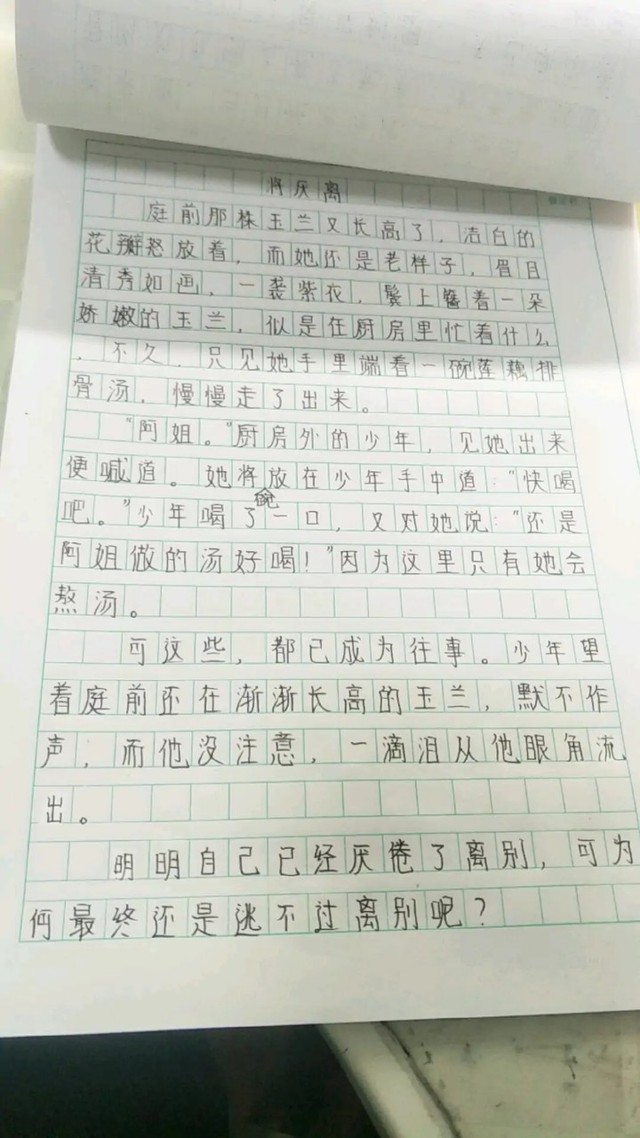 将厌离
庭前那株玉兰又长高了，洁白的
花瓣怒放着，而她还是老样子，眉目
清秀如画，一袭紫衣，鬓上簪着一朵
娇嫩的玉兰，似是在厨房里忙着什么
，不久，只见她手里端着一碗莲藕排
骨汤，慢慢走了出来。
“阿姐。”厨房外的少年，见她出来
便喊道。她将碗放在少年手中道：“快喝
吧。”少年喝了一口，又对她说：“还是
阿姐做的汤好喝！”因为这里只有她会
熬汤。
可这些，都已成为往事。少年望
着庭前还在渐渐长高的玉兰，默不作
声，而他没注意，一滴泪从他眼角流
出。
明明自己已经厌倦了离别，可为
何最终还是逃不过离别呢？